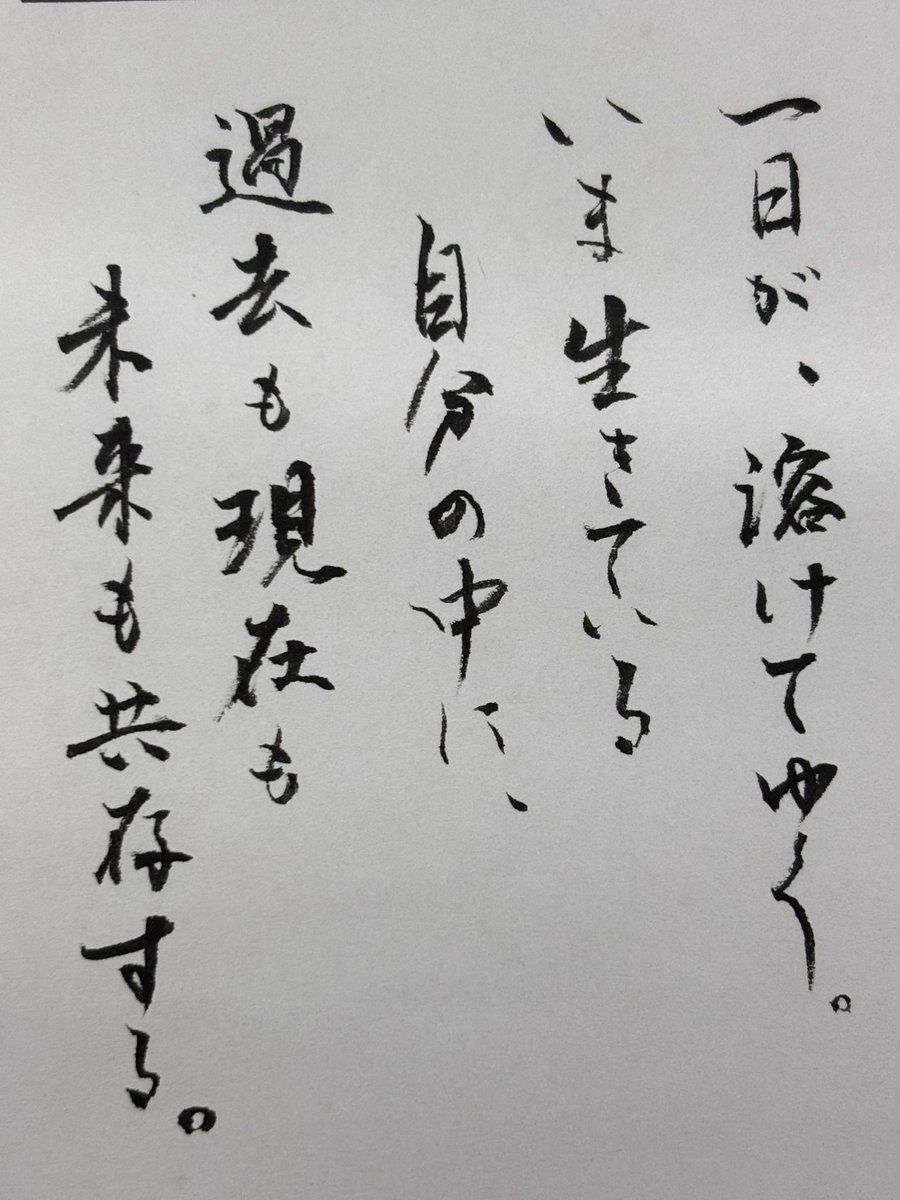 一日が、溶けてゆく。
いま生きている
自分の中に、
過去も現在も
未来も共存する。